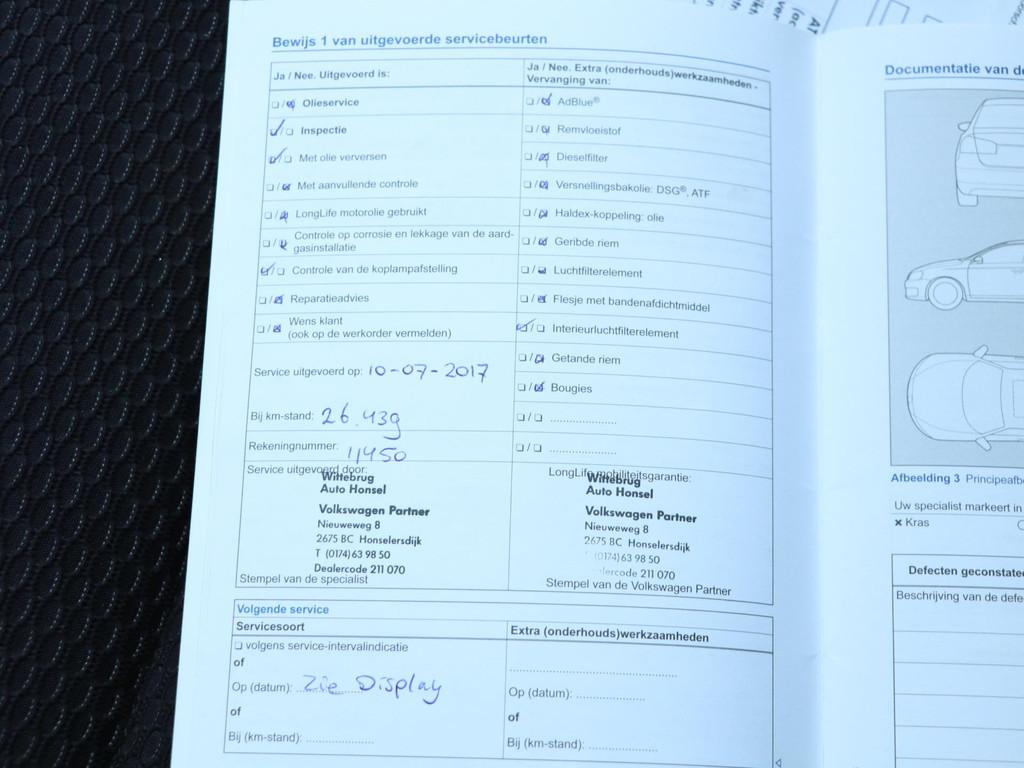 Bewijs 1 van uitgevoerde servicebeurten
Ja / Nee. Uitgevoerd is:
Olieservice
Inspectie
Met olie verversen
Met aanvullende controle
LongLife motorolie gebruikt
Controle op corrosie en lekkage van de aard-
gasinstallatie
Controle van de koplampafstelling
Reparatieadvies
Wens klant
(ook op de werkorder vermelden)
Service uitgevoerd op: 10-07-2017
Bij km-stand: 26.439
Rekeningnummer: 11450
Ja / Nee. Extra (onderhouds)werkzaamheden -
Vervanging van:
AdBlue®
Remvloeistof
Dieselfilter
Versnellingsbakolie: DSG®, ATF
Haldex-koppeling: olie
Geribde riem
Luchtfilterelement
Flesje met bandenafdichtmiddel
Interieurluchtfilterelement
Getande riem
Bougies
Service uitgevoerd door:
Wittebrug
Auto Honsel
Volkswagen Partner
Nieuweweg 8
2675 BC Honselersdijk
T (0174) 63 98 50
Dealercode 211 070
Stempel van de specialist
LongLife mobiliteitsgarantie:
Wittebrug
Auto Honsel
Volkswagen Partner
Nieuweweg 8
2675 BC Honselersdijk
(0174) 63 98 50
lercode 211 070
Stempel van de Volkswagen Partner
Volgende service
Servicesoort
volgens service-intervalindicatie
of
Op (datum): Zie Display
of
Bij (km-stand): ....................
Extra (onderhouds)werkzaamheden
Op (datum): ....................
of
Bij (km-stand): ....................
Documentatie van de
Afbeelding 3 Principeafb
Uw specialist markeert in
× Kras
Defecten geconstatee
Beschrijving van de defe